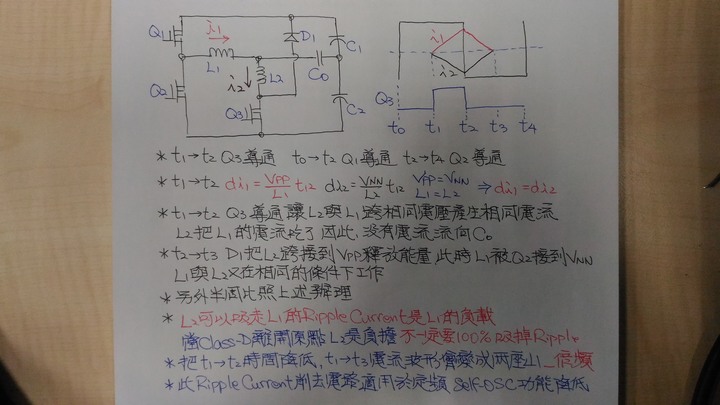 Q1
i1
L1
D1
C1
Q2
i2
L2
C0
Q3
C2
i1
i2
Q3
t0 t1 t2 t3 t4
* t1→t2 Q3導通 t0→t2 Q1導通 t2→t4 Q2導通
* t1→t2 di1 = VPP/L1 t12 di2 = VNN/L2 t12 VPP=VNN L1=L2 ⇒ di1=di2
* t1→t2 Q3導通讓L2與L1跨相同電壓產生相同電流
L2把L1的電流吃了因此,沒有電流流向C0
* t2→t3 D1把L2跨接到VPP釋放能量,此時L1被Q2接到VNN
L1與L2又在相同的條件下工作
* 另外半周比照上述辦理
* L2可以吸走L1的Ripple Current是L1的負載
當Class-D離開原點L2是負擔 不一定要100%吸掉Ripple
* 把t1→t2時間降低,t1→t3電流波形會變成兩座山_倍頻
* 此Ripple Current削去電路適用於定頻 Self-OSC功能降低